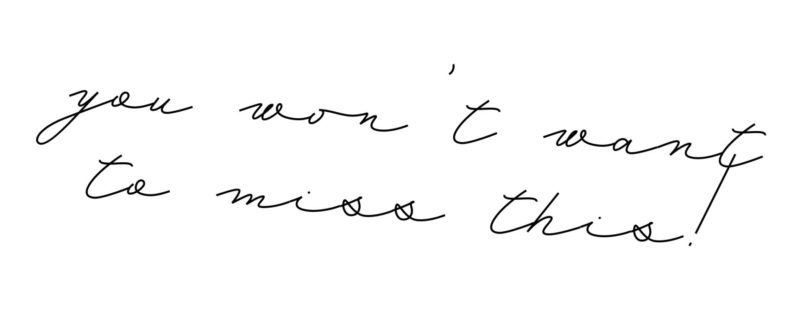 you won't want
to miss this!